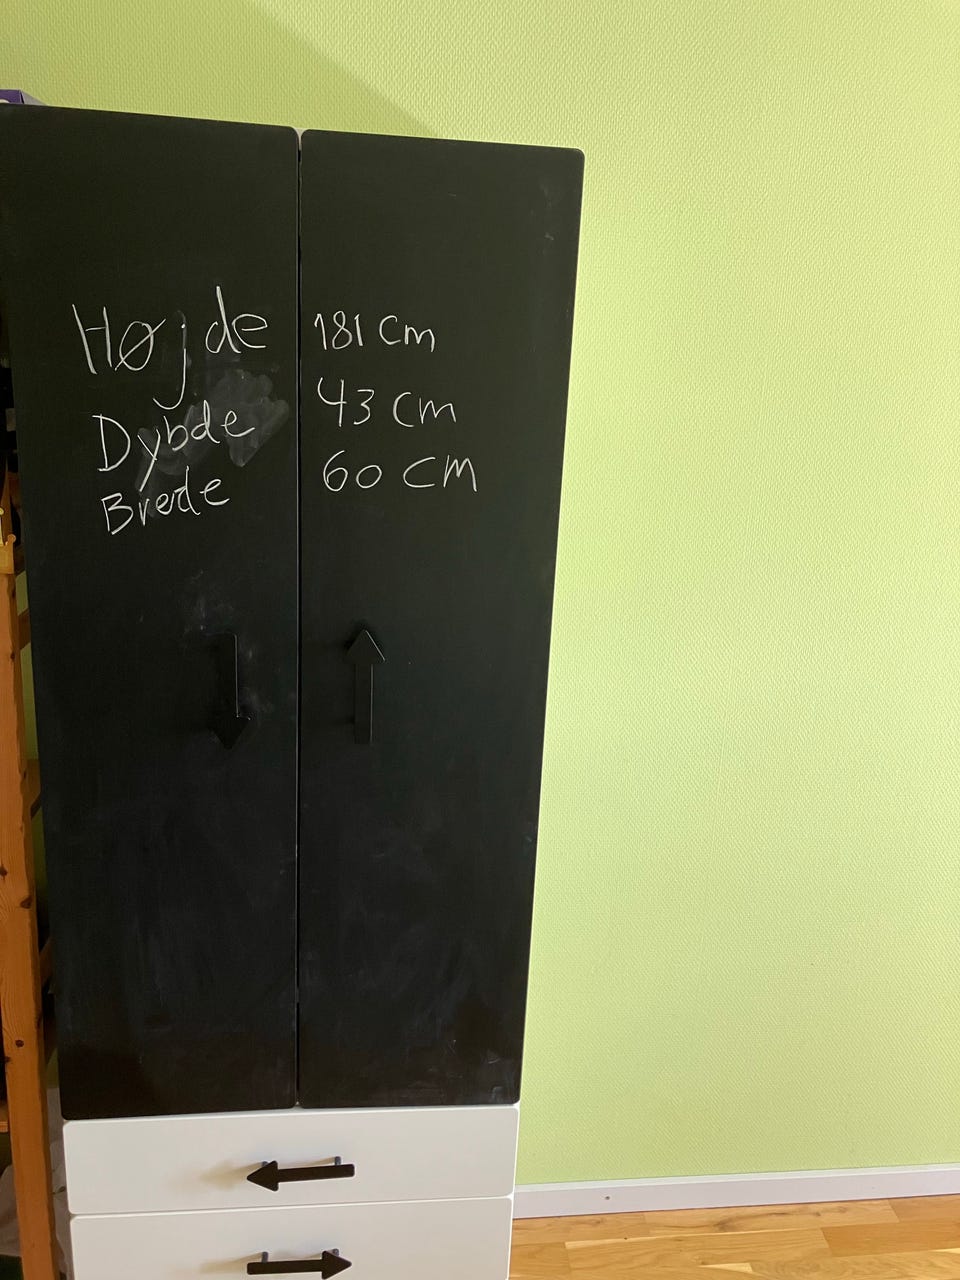 Højde 181 cm
Dybde 43 cm
Brede 60 cm